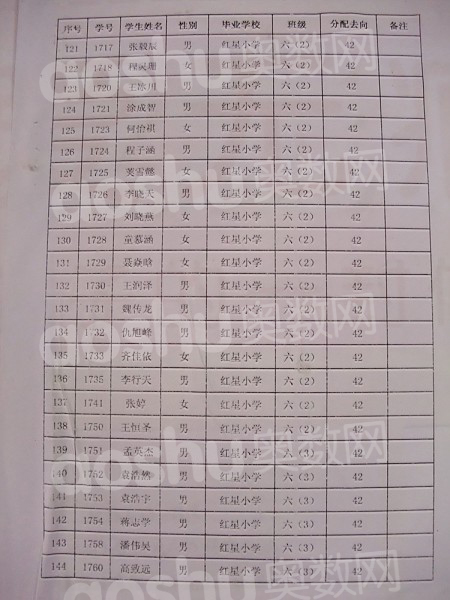 序号 学号 学生姓名 性别 毕业学校 班级 分配去向 备注
121 1717 张毅辰 男 红星小学 六（2） 42
122 1718 程灵珊 女 红星小学 六（2） 42
123 1720 王冰川 男 红星小学 六（2） 42
124 1721 涂成智 男 红星小学 六（2） 42
125 1723 何怡祺 女 红星小学 六（2） 42
126 1724 程子涵 男 红星小学 六（2） 42
127 1725 芙雪懿 女 红星小学 六（2） 42
128 1726 李晓天 男 红星小学 六（2） 42
129 1727 刘晓燕 女 红星小学 六（2） 42
130 1728 童慕涵 女 红星小学 六（2） 42
131 1729 聂焱晗 女 红星小学 六（2） 42
132 1730 王润泽 男 红星小学 六（2） 42
133 1731 魏传龙 男 红星小学 六（2） 42
134 1732 仇旭峰 男 红星小学 六（2） 42
135 1733 齐佳依 女 红星小学 六（2） 42
136 1735 李行天 男 红星小学 六（2） 42
137 1741 张婷 女 红星小学 六（2） 42
138 1750 王恒圣 男 红星小学 六（2） 42
139 1751 孟英杰 男 红星小学 六（3） 42
140 1752 袁浩然 男 红星小学 六（3） 42
141 1753 袁浩宇 男 红星小学 六（3） 42
142 1754 蒋志学 男 红星小学 六（3） 42
143 1758 潘伟昊 男 红星小学 六（3） 42
144 1760 高致远 男 红星小学 六（3） 42
aoshu奥数网